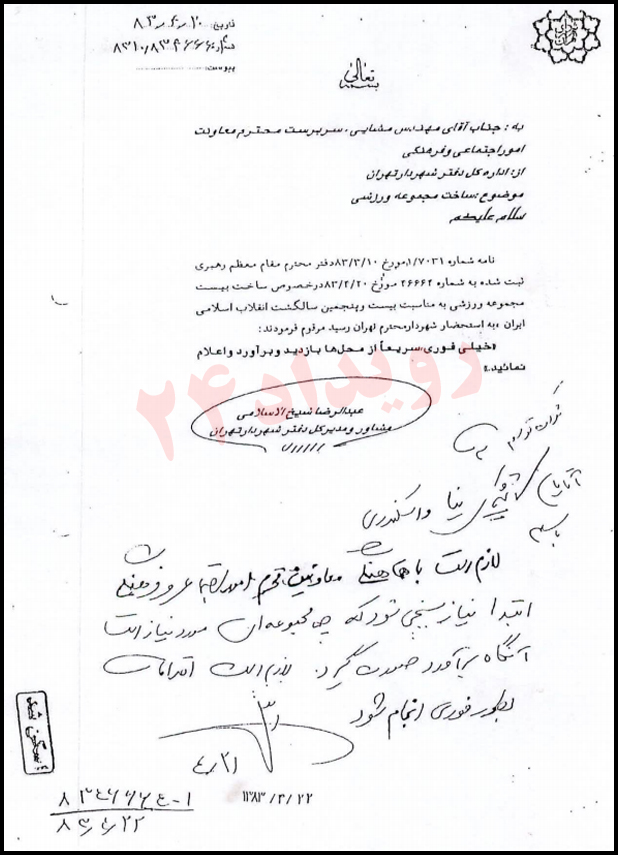 تاریخ: ۸۳٫۴٫۲۰
شماره: ۸۳۱۰٫۸۳۴۶۶۶
پیوست:
بسمه تعالی
به : جناب آقای مهندس مشایی، سرپرست محترم معاونت
امور اجتماعی و فرهنگی
از: اداره کل دفتر شهردار تهران
موضوع: ساخت مجموعه ورزشی
سلام علیکم
نامه شماره ۱/۷۰۳۱ مورخ ۸۳/۳/۱۰ دفتر محترم مقام معظم رهبری
ثبت شده به شماره ۲۶۶۶۲ مورخ ۸۳/۴/۲۰ درخصوص ساخت بیست
مجموعه ورزشی به مناسبت بیست و پنجمین سالگشت انقلاب اسلامی
ایران ،به استحضار شهردار محترم تهران رسید مرقوم فرمودند:
«خیلی فوری سریعاً از محل‌ها بازدید و برآورد و اعلام
نمائید.»
رویداد۲۴
عبدالرضا شیخ الاسلامی
مشاور و مدیر کل دفتر شهردار تهران
آقایان
نیا و اسکندری
لازم است با هماهنگی معاونین محترم امور اجتماعی و فرهنگی
ابتدا نیاز سنجی شود که چه مجموعه‌ای مورد نیاز است
آنگاه برآورد صورت گیرد. لازم است اقدامات
بطور فوری انجام شود
۴٫۲۱
۱۳۸۳/۴/۲۲
اسکن شد
۸۳۴۶۶۶۴-۱
۸۳٫۴٫۲۲